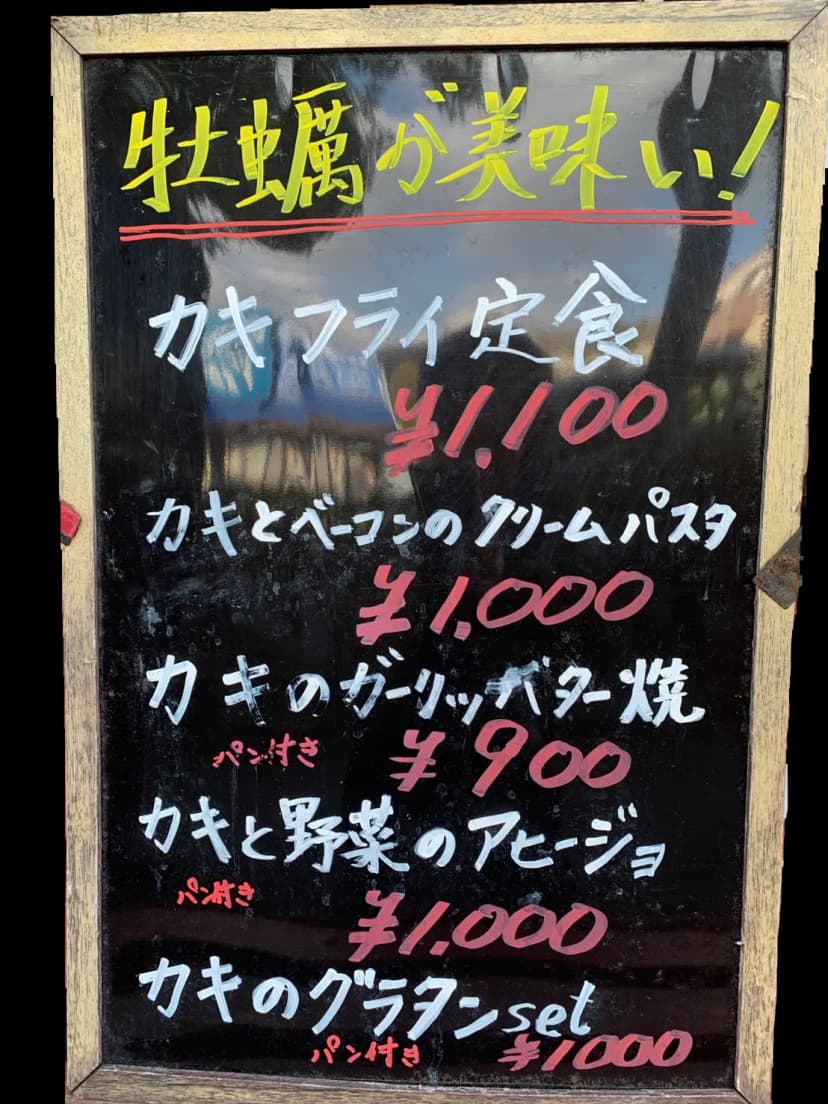 牡蠣が美味い!
カキフライ定食
¥1,100
カキとベーコンのクリームパスタ
¥1,000
カキのガーリッバター焼
パン付き ¥900
カキと野菜のアヒージョ
パン付き ¥1,000
カキのグラタンset
パン付き ¥1000